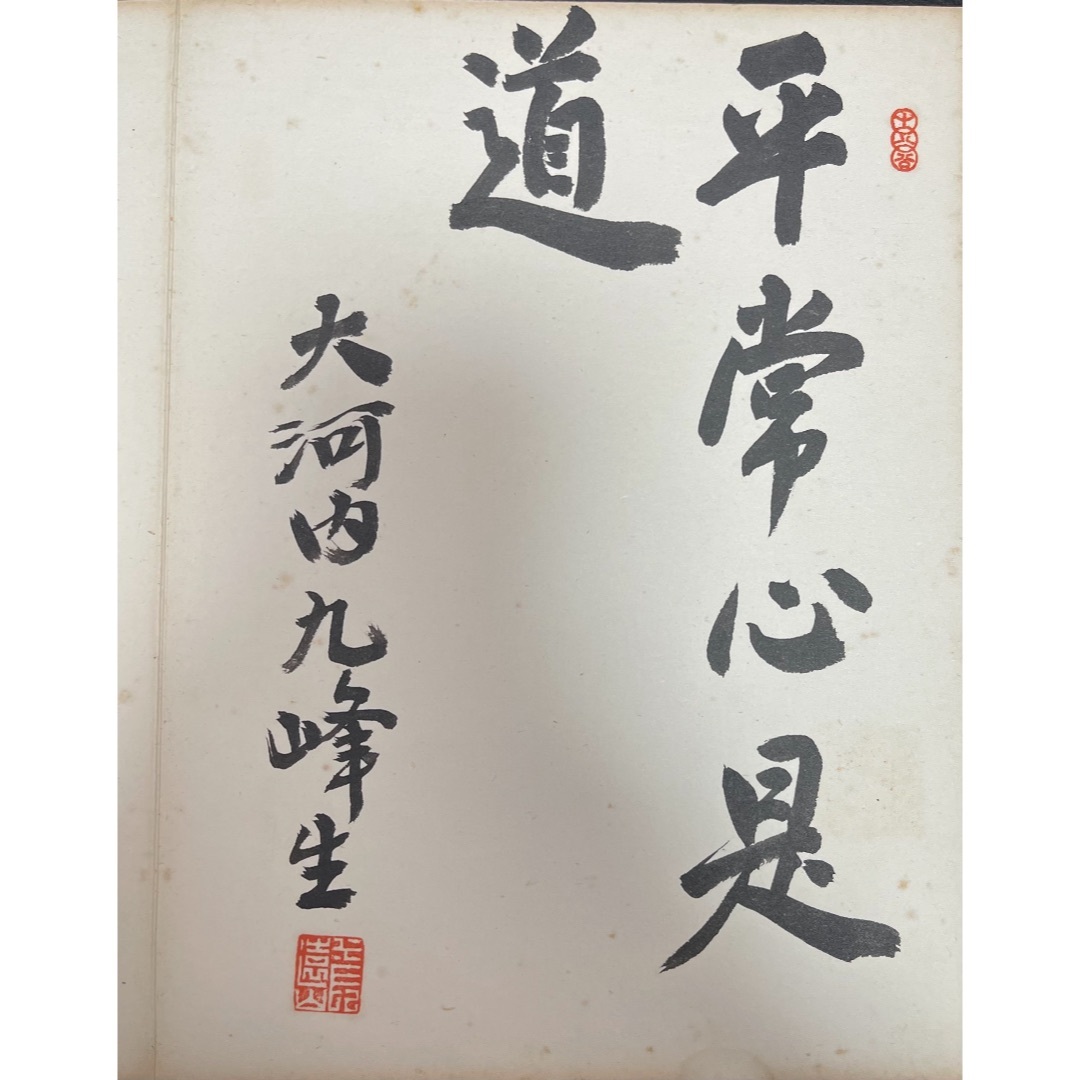 平常心是
道
大河内九峰生